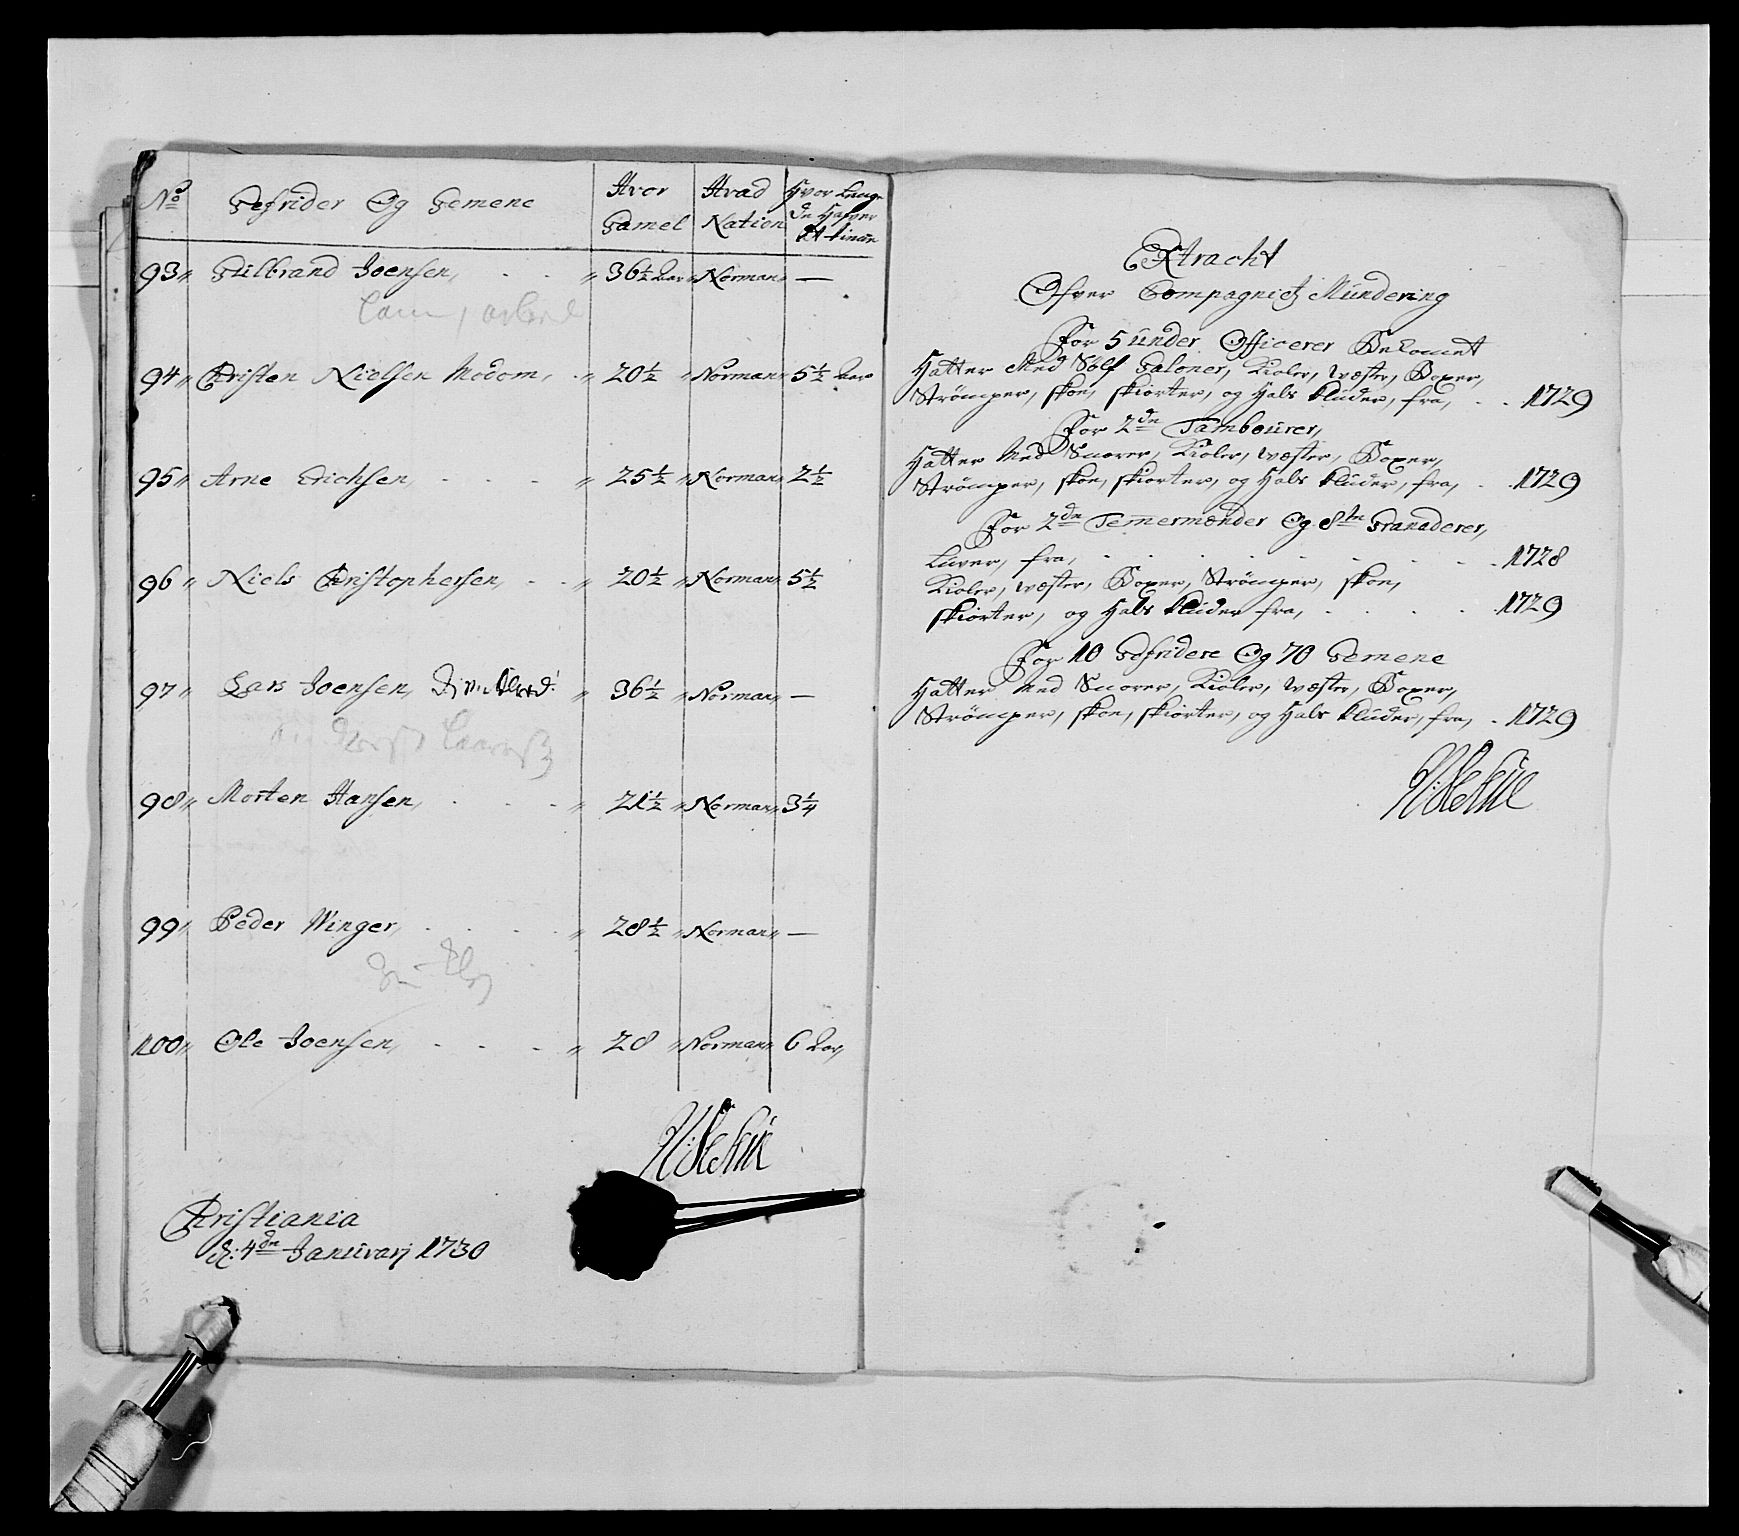 No Gefrider Og Gemene Hvor Gamel Hvad Nation Hvor Lange de Hafver
93 Gulbrand Joensen, 36½ Aar Norman —
94 Christen Nielsen Modom, 20½ Norman 5½ Aar
95 Arne Erichsen, 25½ Norman 2½
96 Niels Christophersen, 20½ Norman 5½
97 Lars Joensen, 36½ Norman —
98 Morten Hansen, 21½ Norman 3¼
99 Peder Winger, 28½ Norman —
100 Ole Joensen, 28 Norman 6 Aar,
Christiania
d: 4de Januvarj 1730
Extracht
Ofver Compagniets Mundering
For 5 under Officerer Bekomet
Hatter Med Sølf Galoner, Kioler, Wæster, Boxer,
Strømper, skoe, skiorter, og Hals kluder, fra, 1729
For 2de Tambourer,
Hatter Med Snorer, Kioler, Wæster, Boxer,
Strømper, skoe, skiorter, og Hals kluder, fra, 1729
For 2de Temermænder Og 8te Granaderer,
Luver, fra, 1728
Kioler, Wæster, Boxer, Strømper, skoe,
skiorter, og Hals kluder fra, 1729
For 10 Gefridere Og 70 Gemene
Hatter Med Snorer, Kioler, Wæster, Boxer,
Strømper, skoe, skiorter, og Hals kluder, fra, 1729